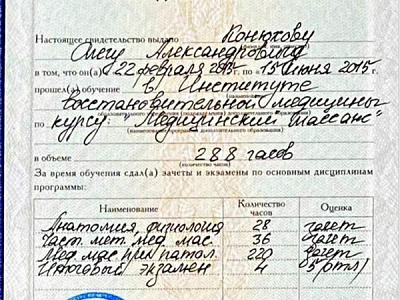 Настоящее свидетельство выдано Конюхову
Олегу Александровичу
(фамилия, имя, отчество)
в том, что он(а) 22 февраля 2015 г. по 15 июня 2015 г.
прошел(а) обучение в Институте
восстановительной медицины
по курсу: "Медицинский массаж"
(наименование программы дополнительного образования)
в объеме 288 часов
(количество часов)
За время обучения сдал(а) зачеты и экзамены по основным дисциплинам
программы:
Наименование Количество часов Оценка
Анатомия, физиология 28 зачет
Част. мет. мед. мас. 36 зачет
Мед. мас при патол. 220 зачет
Итоговый экзамен 4 5(отл)